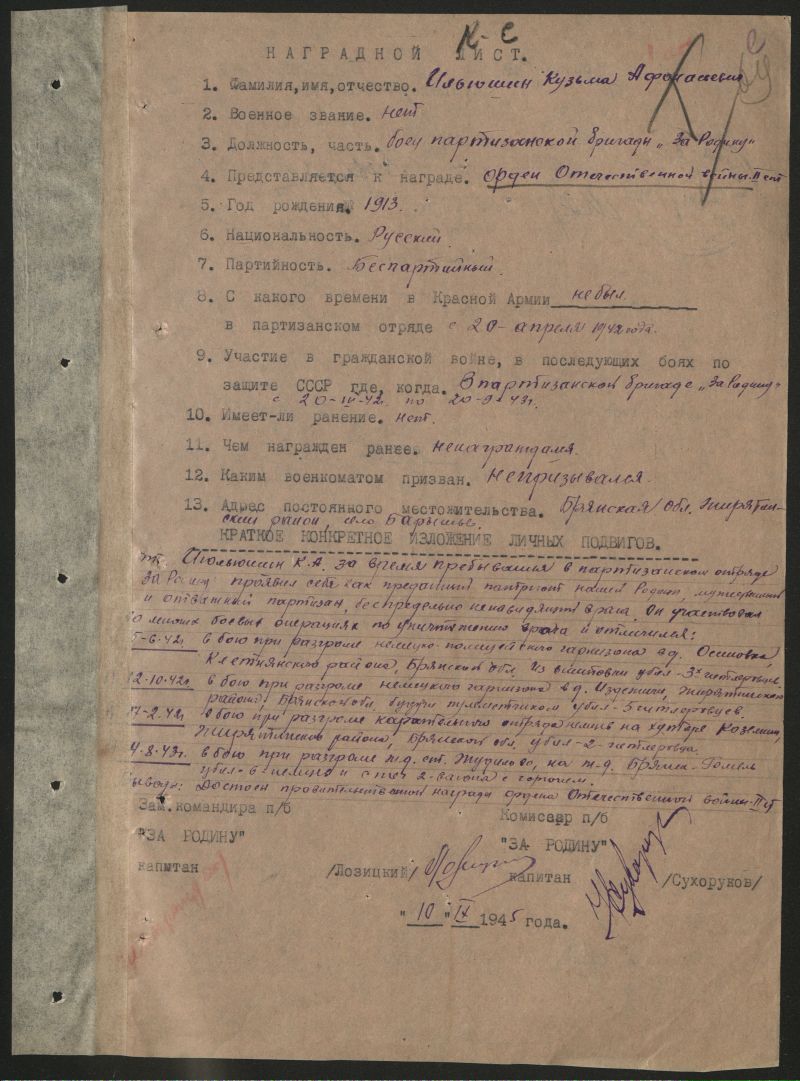 К-С
НАГРАДНОЙ ЛИСТ.
1. Фамилия,имя,отчество. Ильюшин Кузьма Афонасьевич
2. Военное звание. нет
3. Должность, часть. боец партизанской бригады "За Родину"
4. Представляется к награде. орден Отечественной войны II ст
5. Год рождения. 1913.
6. Национальность. Русский.
7. Партийность. Беспартийный.
8. С какого времени в Красной Армии не был.
в партизанском отряде с 20-апреля 1942 года.
9. Участие в гражданской войне, в последующих боях по
защите СССР где, когда. В партизанской бригаде "За Родину"
с 20-IV-42г. по 20-9-43г.
10. Имеет-ли ранение. нет.
11. Чем награжден ранее. ненаграждался.
12. Каким военкоматом призван. непризывался.
13. Адрес постоянного местожительства. Брянская обл. Жирятин-
ский район, село
КРАТКОЕ КОНКРЕТНОЕ ИЗЛОЖЕНИЕ ЛИЧНЫХ ПОДВИГОВ.
К.А. за время пребывания в партизанском отряде
За Родину проявил себя как преданный патриот нашей Родины, мужественный
и отважный партизан, беспредельно ненавидящий врага. Он участвовал
во многих боевых операциях по уничтожению врага и отличился:
5-6-42г. в бою при разгроме немецко-полицейского гарнизона в д. Осиновка,
Клетнянского района, Брянской обл. Из винтовки убил-3х гитлеровцев.
12-10-42г. в бою при разгроме немецкого гарнизона в д. Жирятинского
района, Брянской обл, будучи пулеметчиком убил-5 гитлеровцев.
-2-42г. в бою при разгроме карательного отряда немцев на хуторе
Жирятинского района, Брянской обл, убил-2-гитлеровца.
4-8-43г. в бою при разгроме ж.д. ст. Жудилово, на ж-д. Брянск-Гомель
убил-6-немцев и 2-вагона с горючем.
Вывод: Достоин правительственной награды ордена Отечественной войны-II ст
Зам.командира п/б Комиссар п/б
"ЗА РОДИНУ" "ЗА РОДИНУ"
капитан /Лозицкий/ капитан /Сухоруков/
"10" IX 1945 года.